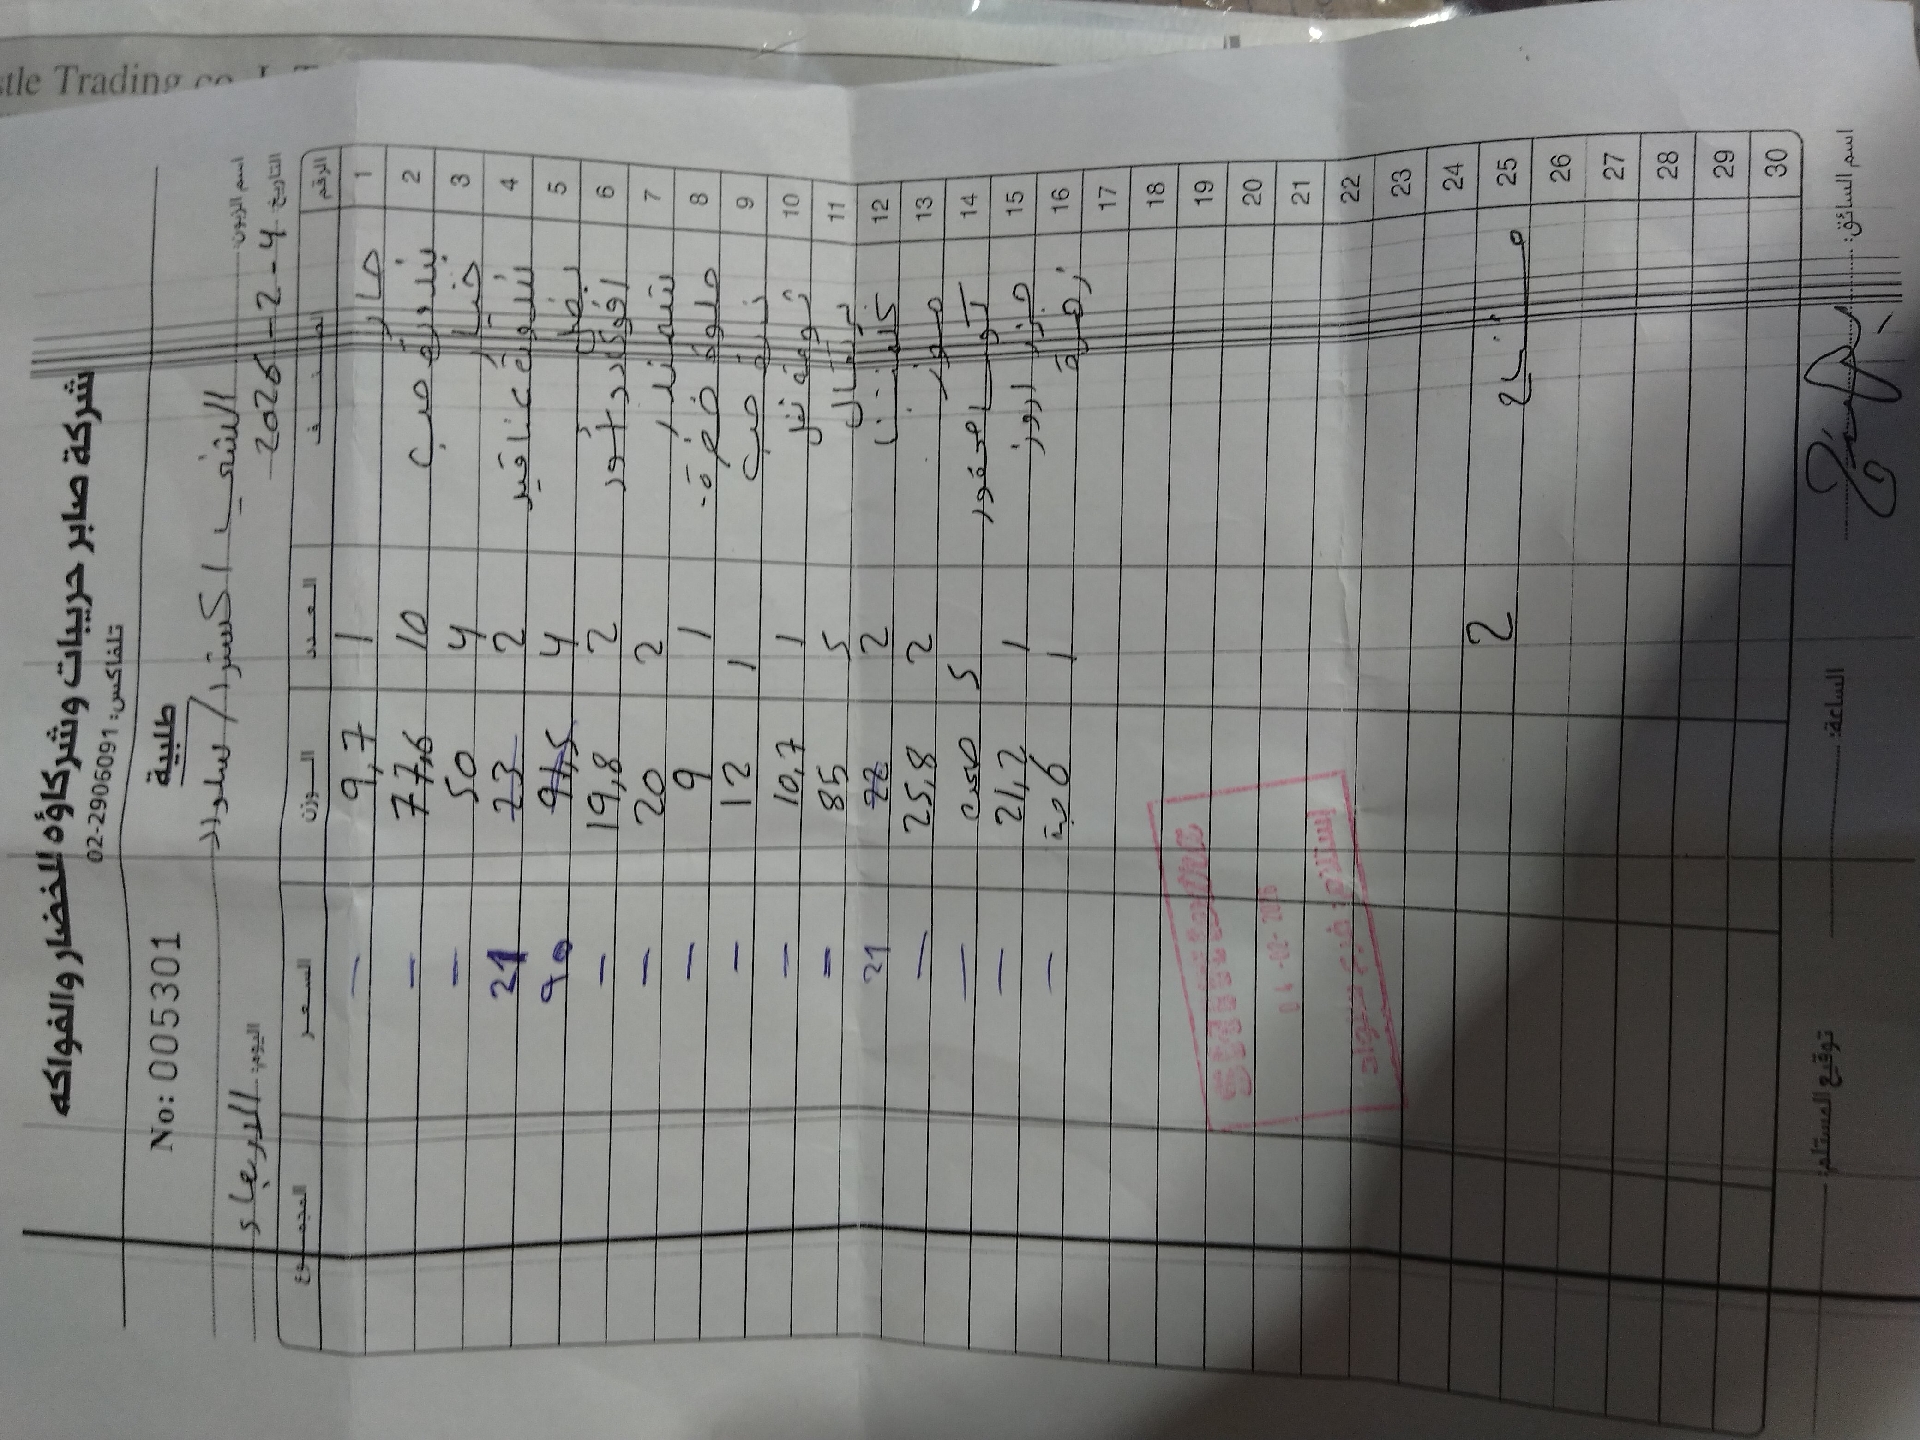 stle Trading co.
شركة صابر حريبات وشركاؤه للخضار والفواكه
تلفاكس: 02-2906091
No: 005301
طلبية
اسم الزبون: الشني اكسترا / سلواد
التاريخ: 4-2-2026
اليوم: الاربعاء
الرقم الصنف العدد الوزن السعر المجموع
1 خيار 1 9,7 -
2 بندورة حب 10 77,6 -
3 خيار 4 50 -
4 بندورة عناقيد 2 23 21
5 بصل 4 91,5 90
6 افوكادو 2 19,8 -
7 شمندر 2 20 -
8 ملوخية 1 9 -
9 ذرة حب 1 12 -
10 1 10,7 -
11 برتقال 5 85 -
12 كلمنتينا 2 22 21
13 موز 2 25,8 -
14 5 -
15 جزر 1 21,2 -
16 زهرة 1 6 حبة -
17
18
19
20
21
22
23
24
25 2
26
27
28
29
30
04-02-2026
استلام فرع سلواد
اسم السائق:
الساعة:
توقيع المستلم: